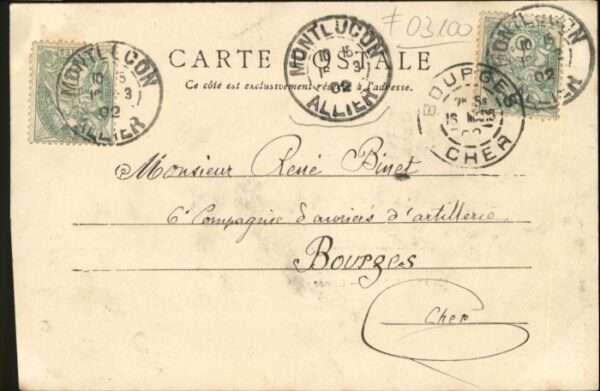 # 03100
CARTE POSTALE
Ce côté est exclusivement réservé à l'adresse.
MONTLUCON
10 15
3
02
ALLIER
MONTLUCON
10 15
3
02
ALLIER
MONTLUCON
10 15
02
ALLIER
BOURGES
CHER
Monsieur René Binet
6e Compagnie d'ouvriers d'artillerie
Bourges
Cher